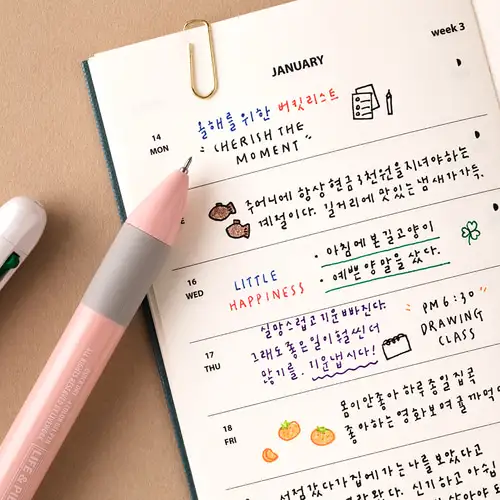 week 3
JANUARY
14
MON
올해를 위한 버킷리스트
"CHERISH THE
MOMENT"
주머니에 항상 현금 3천원을 지녀야하는
계절이다. 길거리에 맛있는 냄새가 가득.
16
WED
LITTLE
HAPPINESS
· 아침에 본 길고양이
· 예쁜 양말을 샀다.
17
THU
실망스럽고 기운 빠진다.
그래도 좋은일이 훨씬 더
많기를. 기운냅시다!
PM 6:30
DRAWING
CLASS
18
FRI
몸이 안좋아 하루종일 집콕
좋아하는 영화보며 귤까먹
서점갔다가 집에 가는 나를 보았다고
신기하고
LIFE &